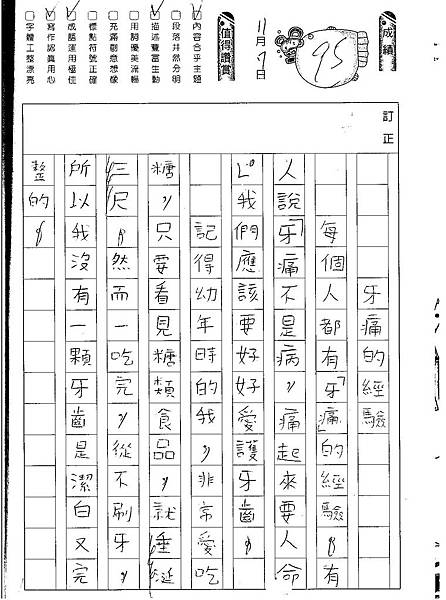 成績
95
11月7日
值得讚賞
內容合乎主題
段落井然分明
描述豐富生動
用詞優美流暢
充滿創意想像
標點符號正確
成語運用極佳
寫作認真用心
字體工整漂亮
訂正
牙痛的經驗
每個人都有牙痛的經驗。有
人說「牙痛不是病,痛起來要人命
」。我們應該要好好愛護牙齒。
記得幼年時的我,非常愛吃
糖,只要看見糖類食品,就垂涎
三尺。然而一吃完,從不刷牙,
所以我沒有一顆牙齒是潔白又完
整的。